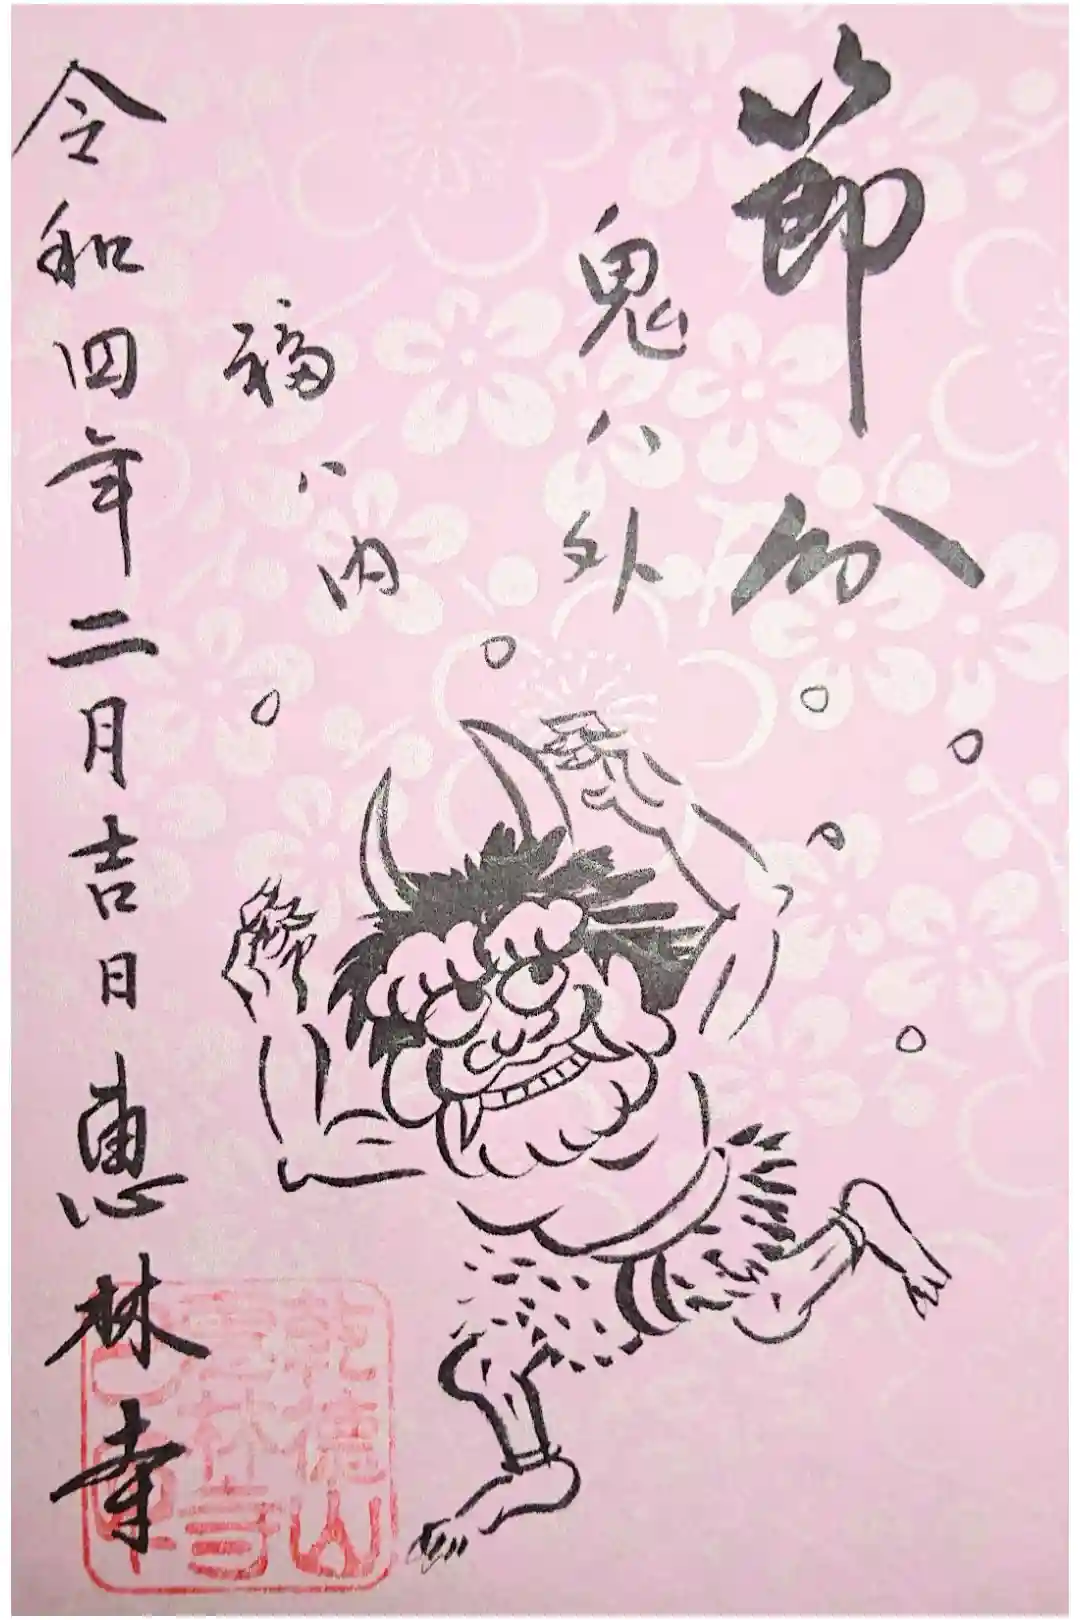 節分
鬼ハ外
福ハ内
令和四年二月吉日恵林寺
乾徳山
恵林寺